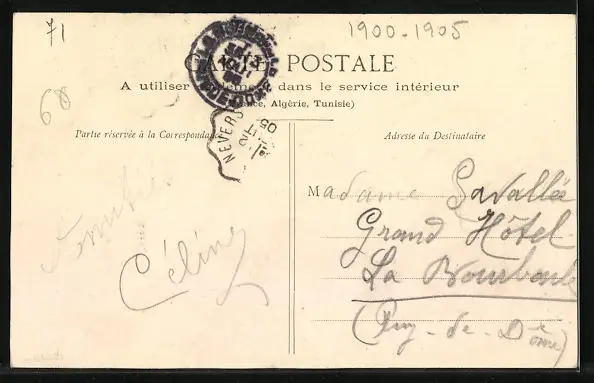 71
1900-1905
CARTE POSTALE
A utiliser seulement dans le service intérieur
(France, Algérie, Tunisie)
68
NEVERS
05
Partie réservée à la Correspondance
Adresse du Destinataire
Madame Lavallée
Grand Hôtel
La Bourboule
(Puy-de-Dôme)
Céline